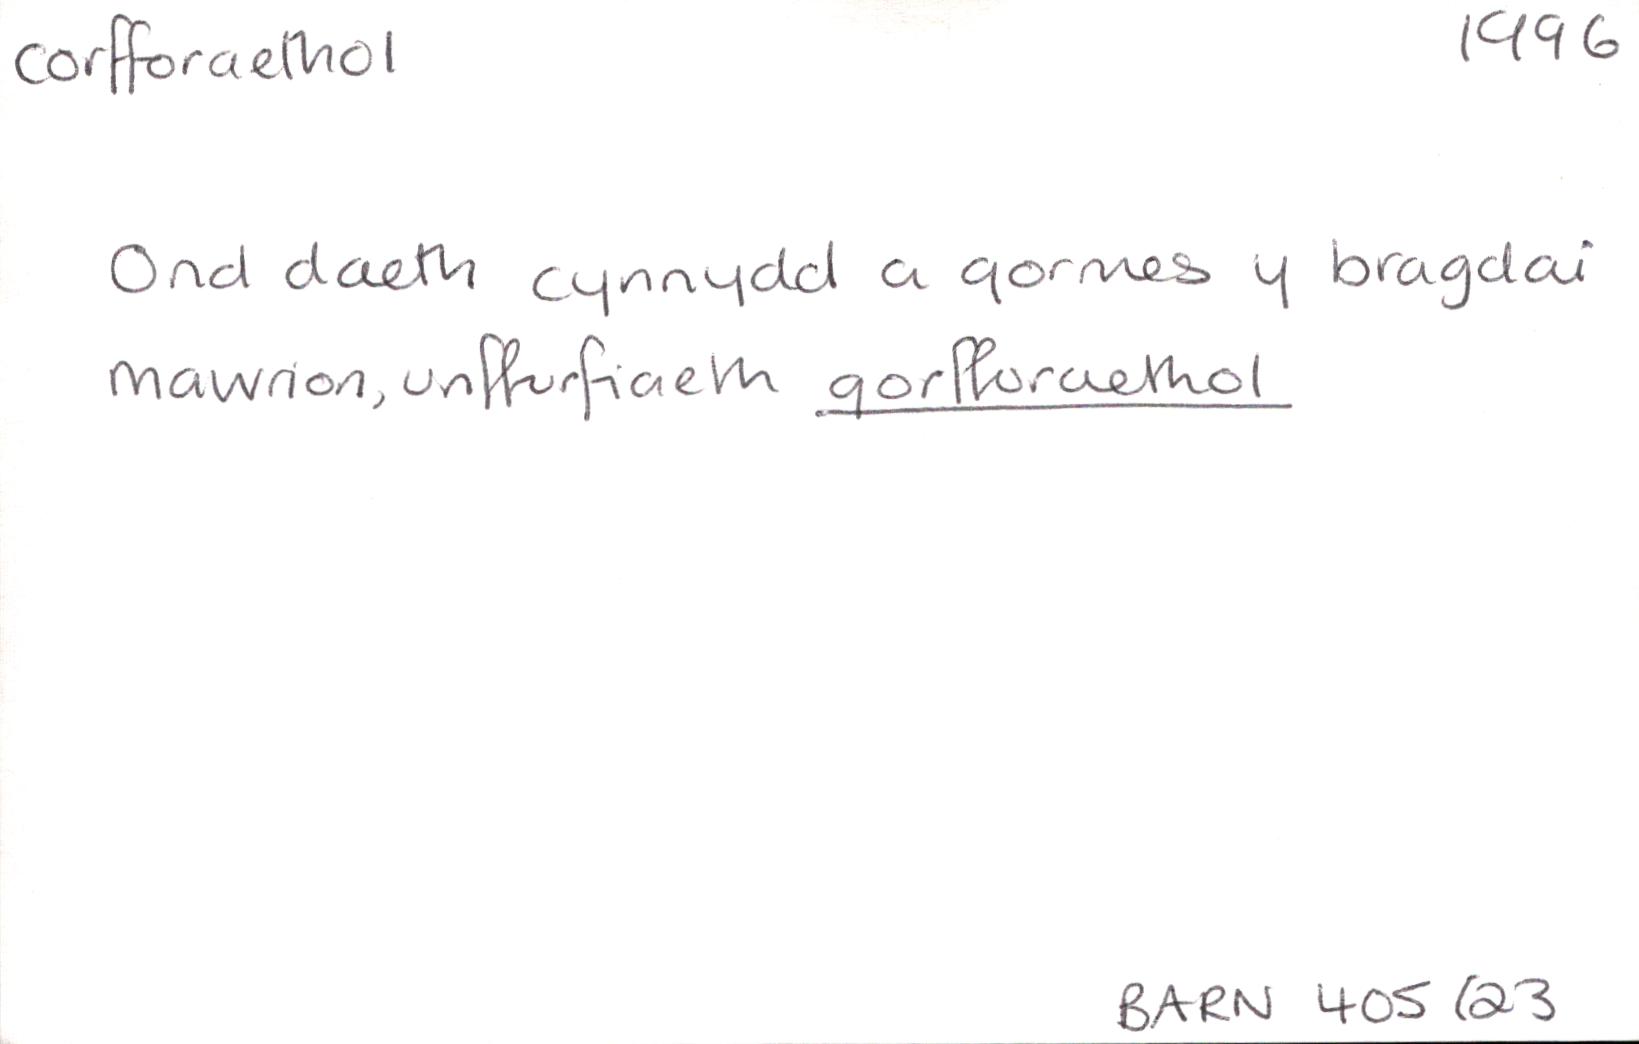 corfforaethol 1996
Ond daeth cynnydd a gormes y bragdai
mawrion, unffurfiaeth gorfforaethol
BARN 405/23